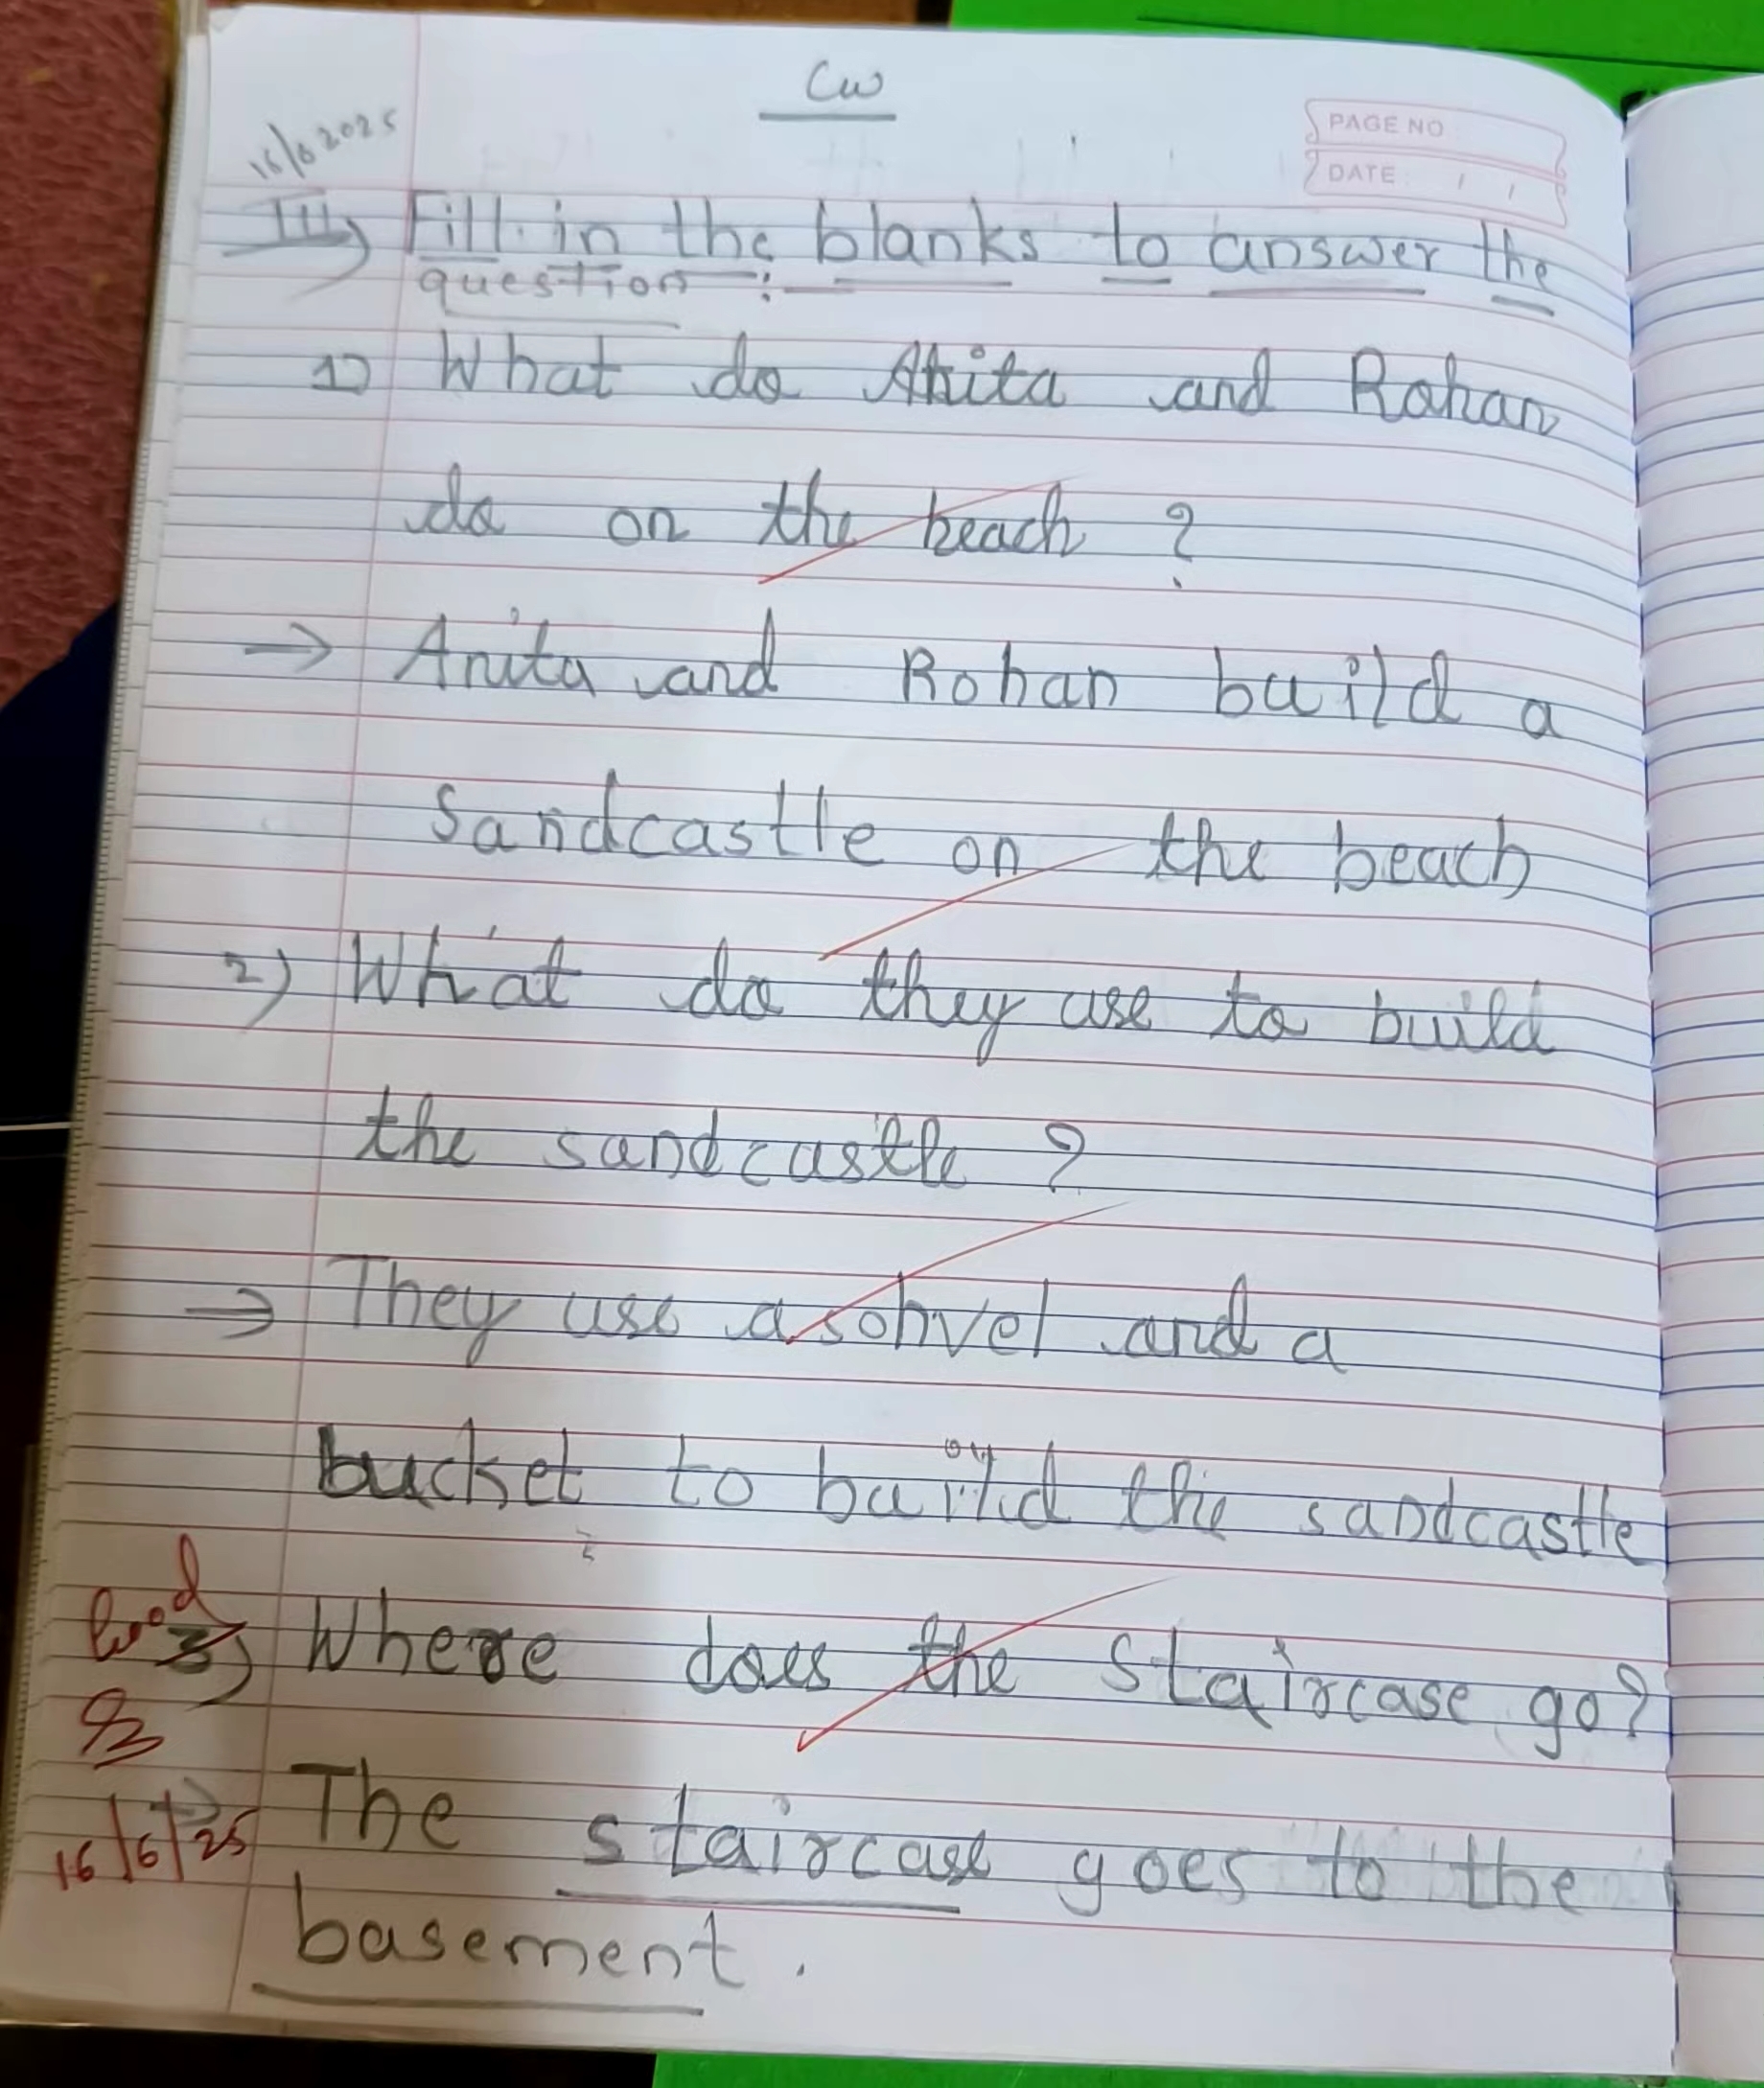 Cw
PAGE NO
DATE : / /
16/6 2025
III) Fill in the blanks to answer the
question :-
1) What do Anita and Rohan
do on the beach ?
→ Anita and Rohan build a
Sandcastle on the beach
2) What do they use to build
the sandcastle ?
→ They use a sohvel and a
bucket to build the sandcastle
Good
3) Where does the staircase go?
→ The staircase goes to the
16/6/25
basement.